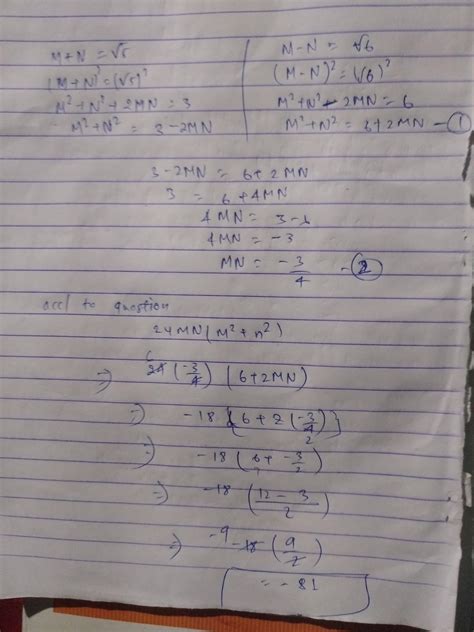 M+N = √5
(M+N)² = (√5)²
M²+N²+2MN = 3
M²+N² = 3-2MN
M-N = √6
(M-N)² = (√6)²
M²+N²-2MN = 6
M²+N² = 6+2MN -①
3-2MN = 6+2MN
3 = 6+4MN
4MN = 3-6
4MN = -3
MN = -3/4 -②
accl to question
24MN(M²+n²)
⇒ 6 24(-3/4) (6+2MN)
⇒ -18 {6+2(-3/4)} 2
⇒ -18 (6+ -3/2)
⇒ -18 (12-3/2)
⇒ -9 -18 (9/2)
= -81